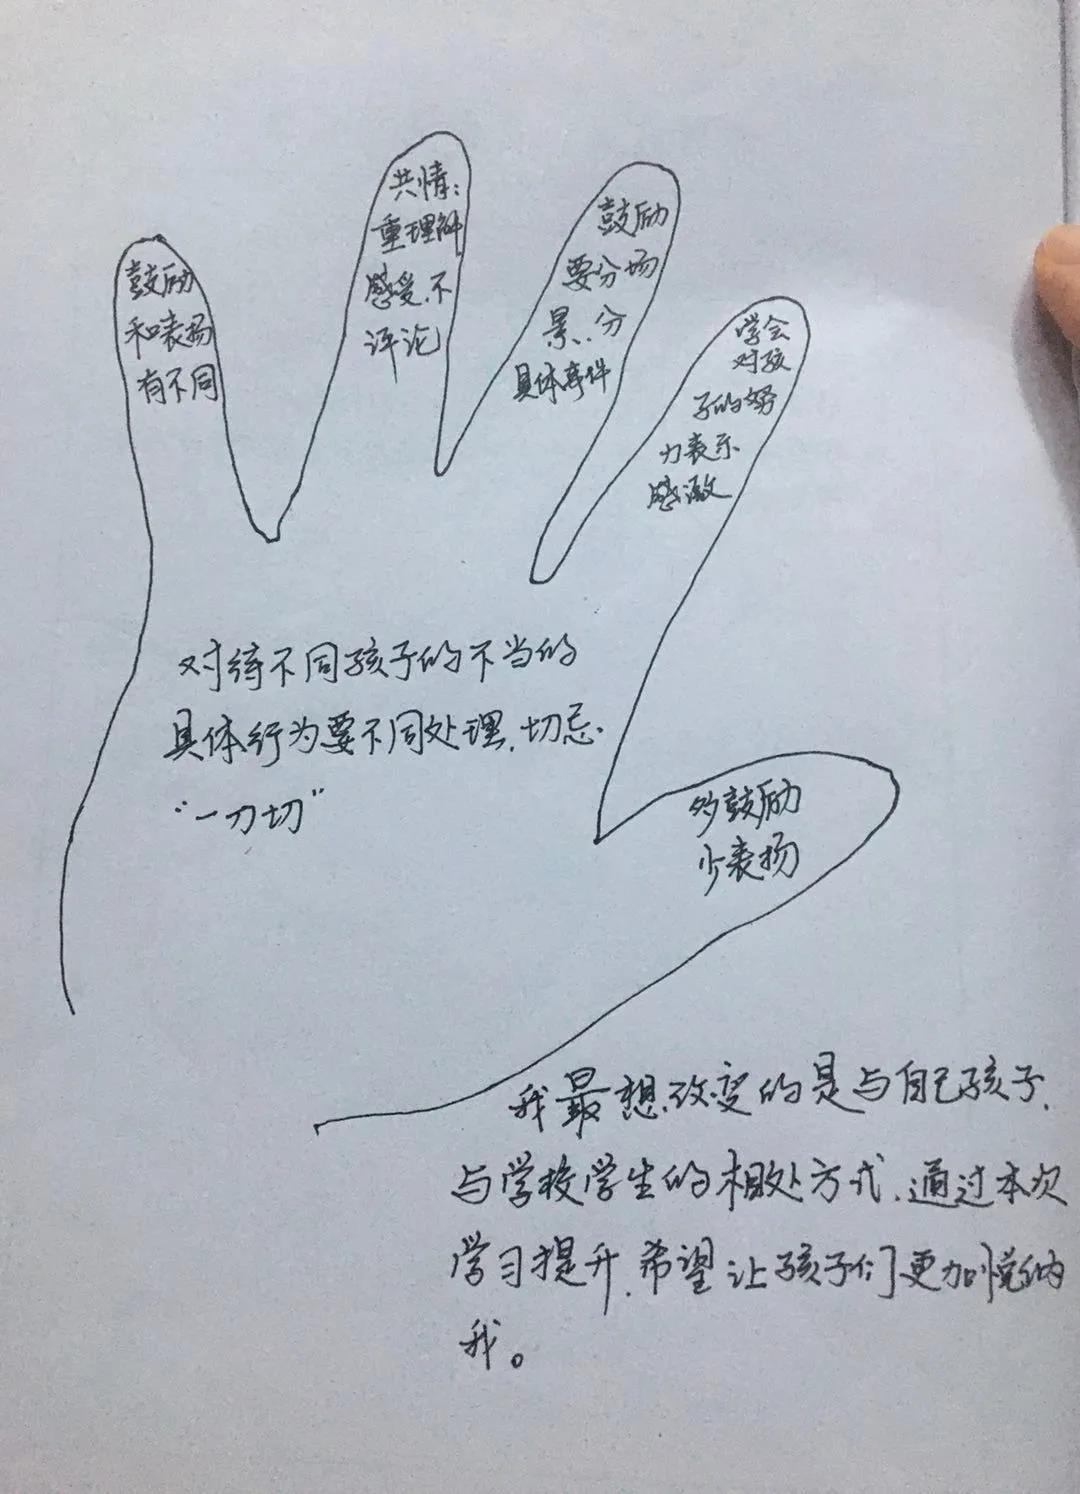 鼓励
和表扬
有不同
共情：
重理解
感受、不
评论
鼓励
要分场
景、分
具体事件
学会
对孩
子的努
力表示
感激
对待不同孩子的不当的
具体行为要不同处理，切忌
“一刀切”
多鼓励
少表扬
我最想改变的是与自己孩子、
与学校学生的相处方式，通过本次
学习提升，希望让孩子们更加悦纳
我。